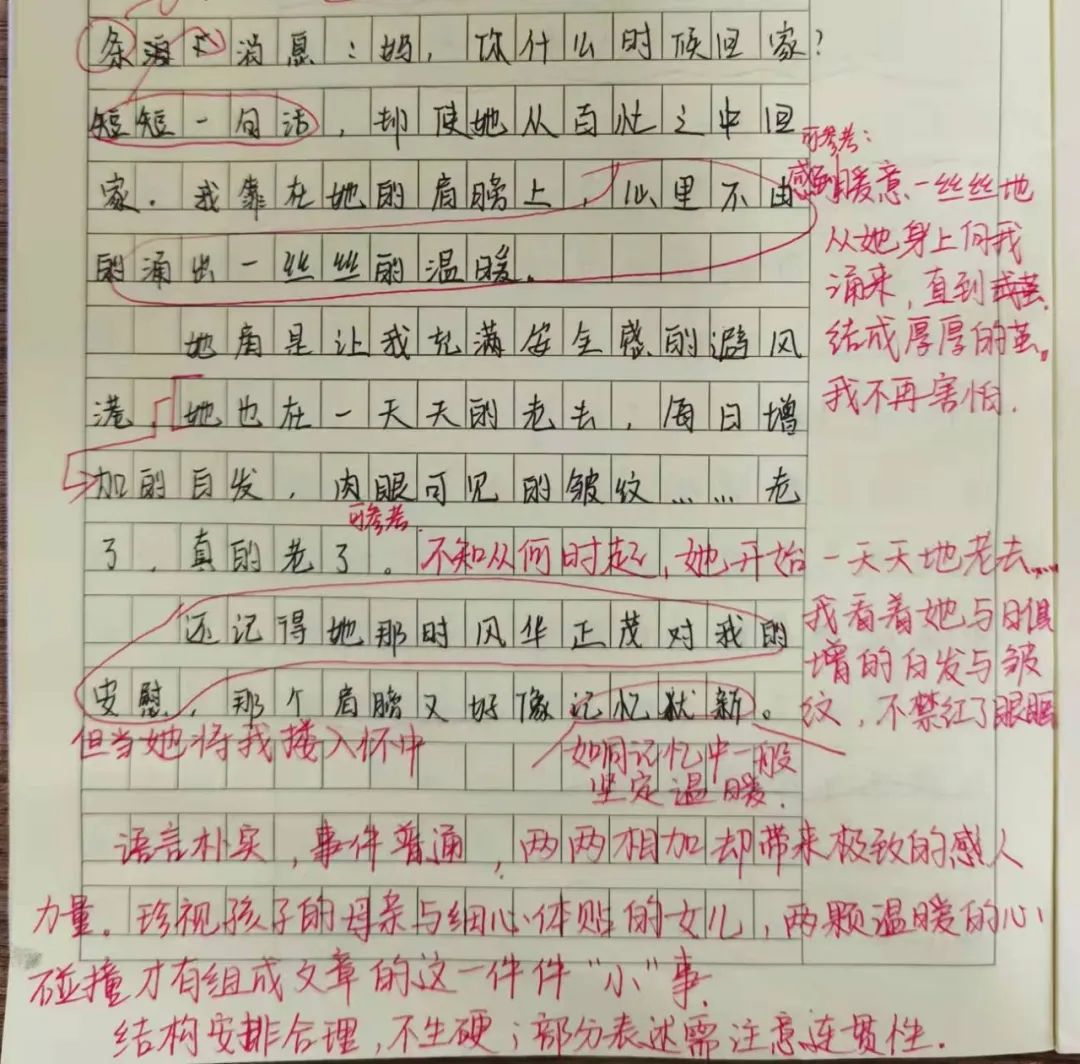 条 消息：妈，你什么时候回家？
短短一句话，却使她从百忙之中回
家．我靠在她的肩膀上，心里不由
的涌出一丝丝的温暖．
可参考：
感到暖意一丝丝地
从她身上向我
涌来，直到
结成厚厚的茧。
我不再害怕．
她肩是让我充满安全感的避风
港，她也在一天天的老去，每日增
加的白发，肉眼可见的皱纹……老
了，真的老了。
可参考．
不知从何时起，她开始一天天地老去……
我看着她与日俱
增的白发与皱
纹，不禁红了眼眶
还记得她那时风华正茂对我的
安慰，那个肩膀又好像记忆犹新。
但当她将我搂入怀中
如同记忆中一般
坚定温暖．
语言朴实，事件普通，两两相加却带来极致的感人
力量．珍视孩子的母亲与细心体贴的女儿，两颗温暖的心
碰撞才有组成文章的这一件件“小”事．
结构安排合理，不生硬；部分表述需注意连贯性．